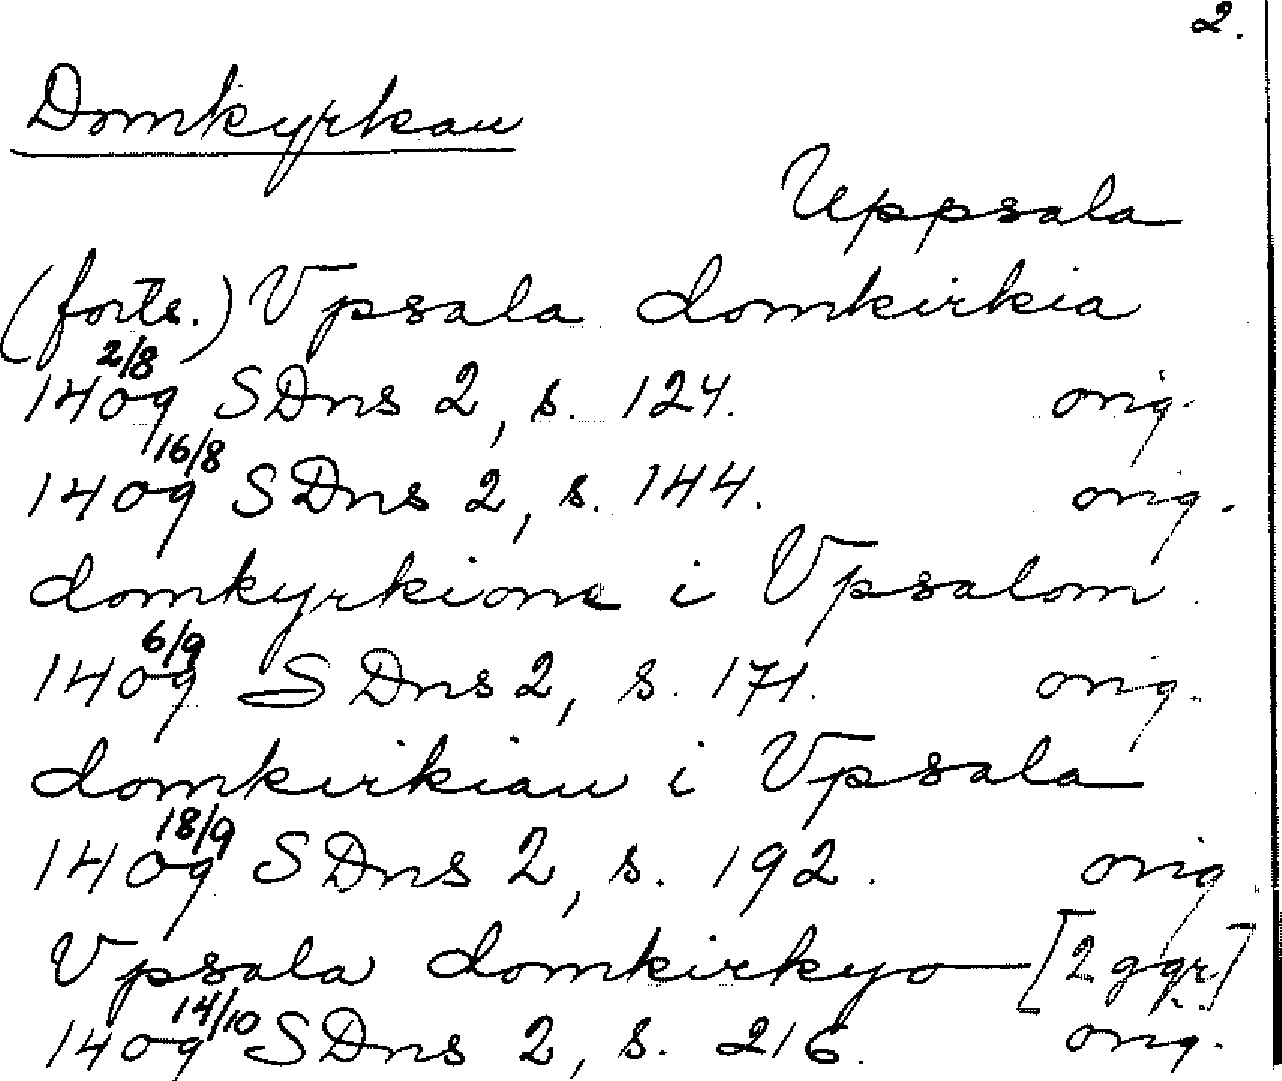 2.
Domkyrkan
Uppsala
(forts.) Vpsala domkirkia
1409 2/8 SDns 2, s. 124. orig.
1409 16/8 SDns 2, s. 144. orig.
domkyrkione i Vpsalom
1409 6/9 SDns 2, s. 171. orig.
domkirkian i Vpsala
1409 18/9 SDns 2, s. 192. orig.
Vpsala domkirkyo [2 ggr.]
1409 14/10 SDns 2, s. 216. orig.